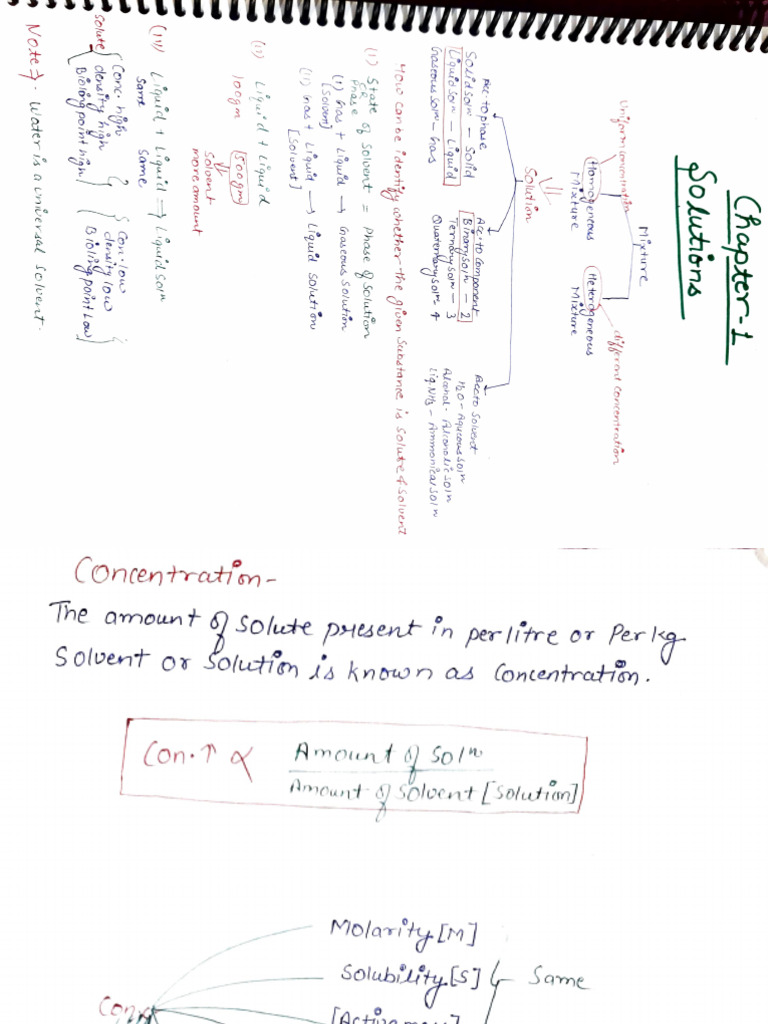 Chapter-1
Solutions
Mixture
Uniform concentration
different concentration
Homogeneous
Mixture
Heterogeneous
Mixture
Solution
Acc to phase
Solid soln - Solid
Liquid soln - Liquid
Gaseous soln - Gas
Acc to Component
Binary soln - 2
Ternary soln - 3
Quaternary soln 4
Acc to Solvent
H₂O - Aqueous soln
Alcohol - Alcoholic soln
Liq. NH₃ - Ammonical soln
How can be identify whether the given substance is solute & solvent
(i) State of solvent = Phase of solution
OR
Phase
(i) Gas + Liquid → Gaseous solution
[Solvent]
(ii) Gas + Liquid → Liquid solution
[Solvent]
(ii) Liquid + Liquid
100gm 500gm
Solvent
more amount
(iii) Liquid + Liquid → Liquid soln
same same
Solute { Conc. high } { Con. low }
density high density low
Bioling point high Bioling point low
Note → Water is a universal solvent.
Concentration-
The amount of solute present in per litre or Per kg
Solvent or Solution is known as Concentration.
Con. ↑ ∝ Amount of Solⁿ
Amount of Solvent [Solution]
Molarity [M]
Solubility [S] Same